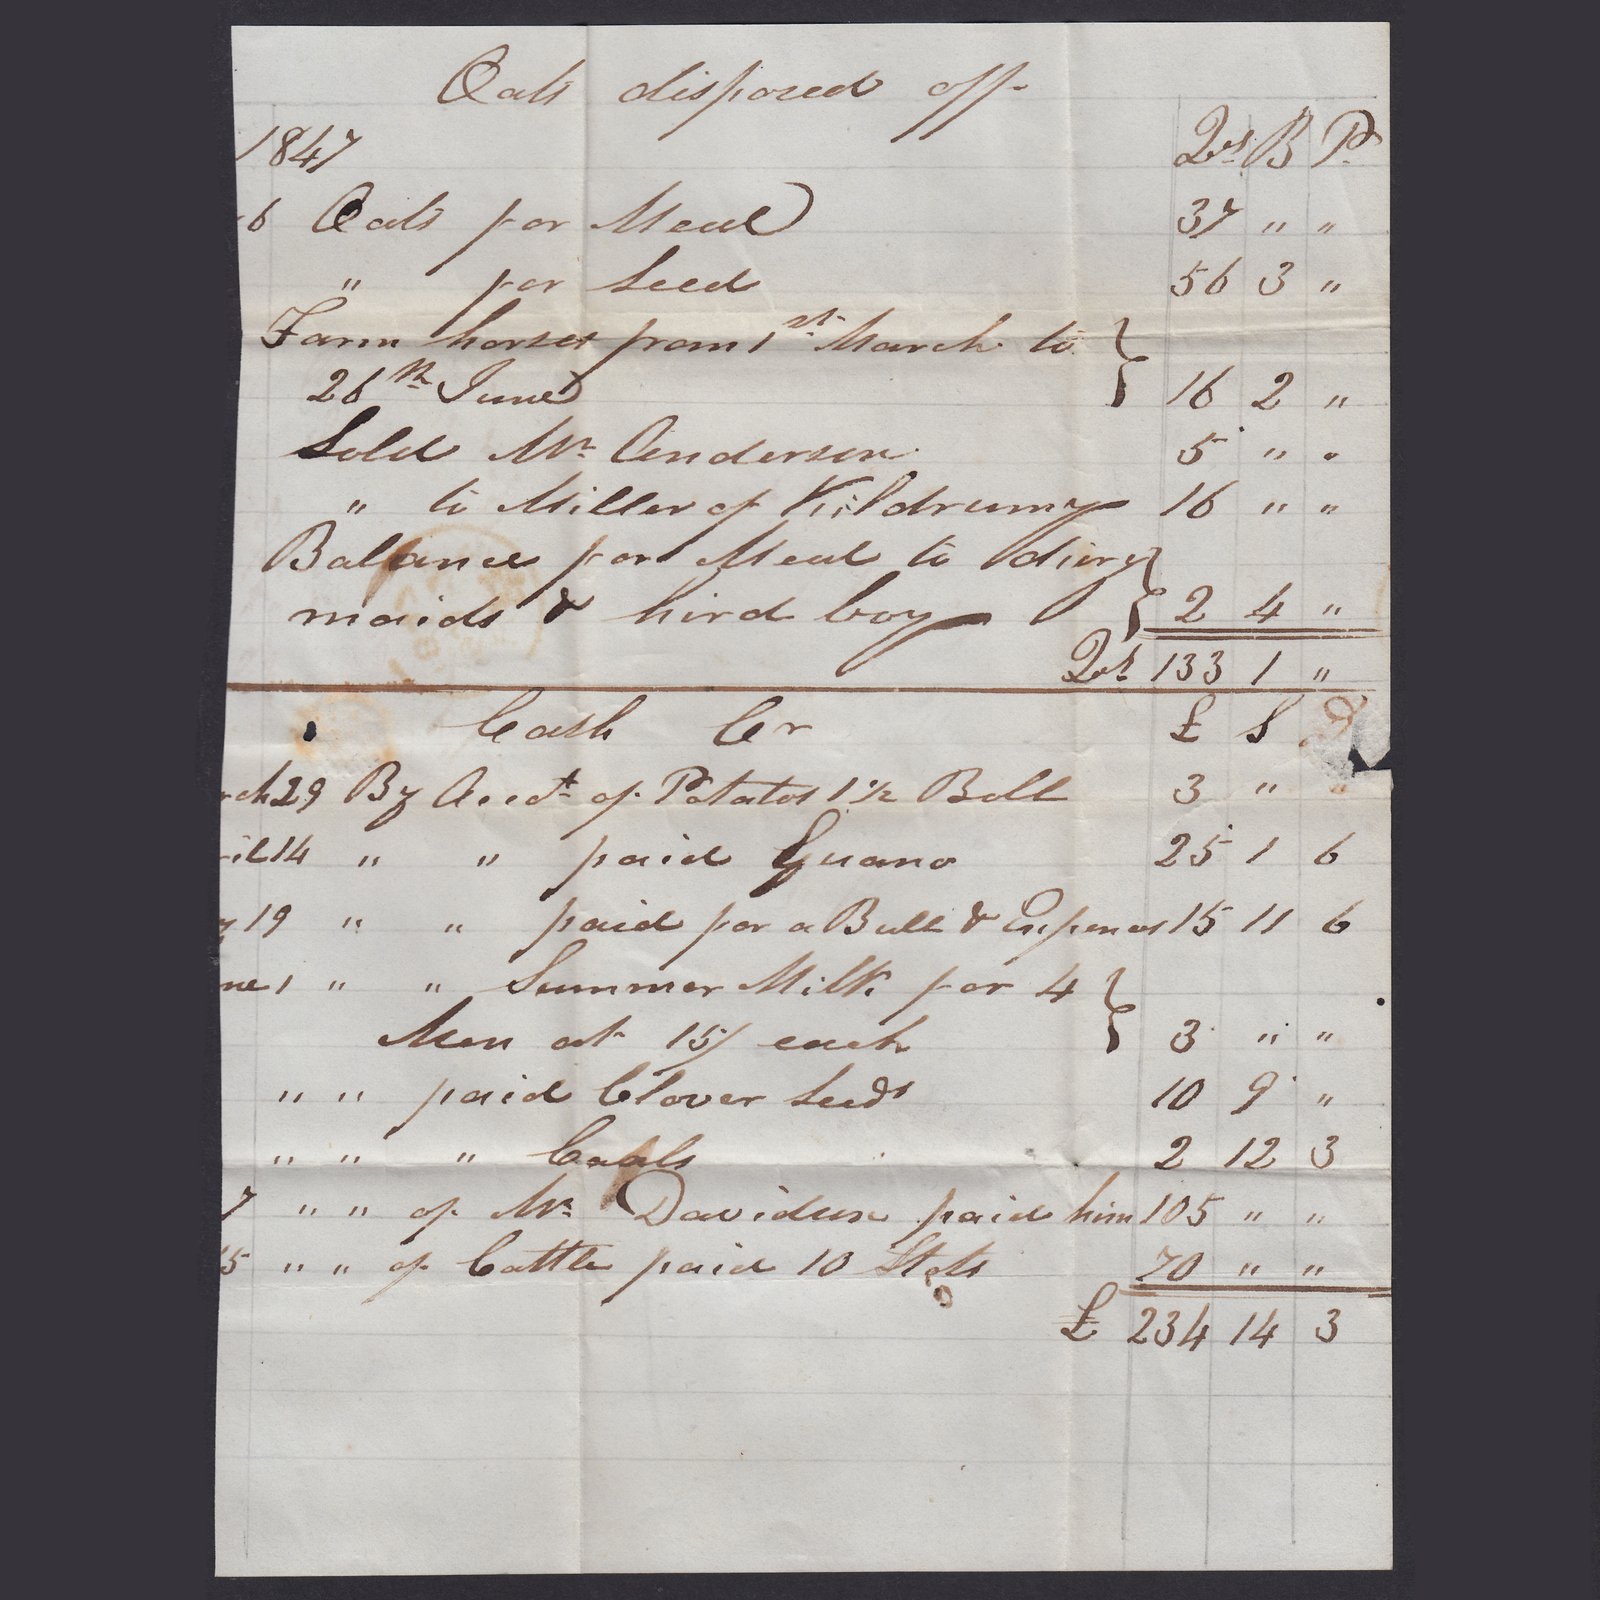 Oats disposed off
1847 Qrs B P
6 Oats for Meal 37 " "
" for Seed 56 3 "
Farm horses from 1st March to
26th June 16 2 "
Sold Mr Anderson 5 " "
" to Miller of Kildrumy 16 " "
Balance for Meal to diery
maids & hird boy 2 4 "
Qrs 133 1 "
Cash Cr £ S D
rch 29 By Acct of Potatos 1 1/2 Boll 3 "
il 14 " " paid Guano 25 1 6
y 19 " " paid for a Bull & Expences 15 11 6
ne 1 " " Summer Milk for 4
Men at 15/ each 3 " "
" " paid Clover Seeds 10 9 "
" " " Coals 2 12 3
7 " " of Mr Davidson paid him 105 " "
15 " " of Cattle paid 10 Stots 70 " "
£ 234 14 3